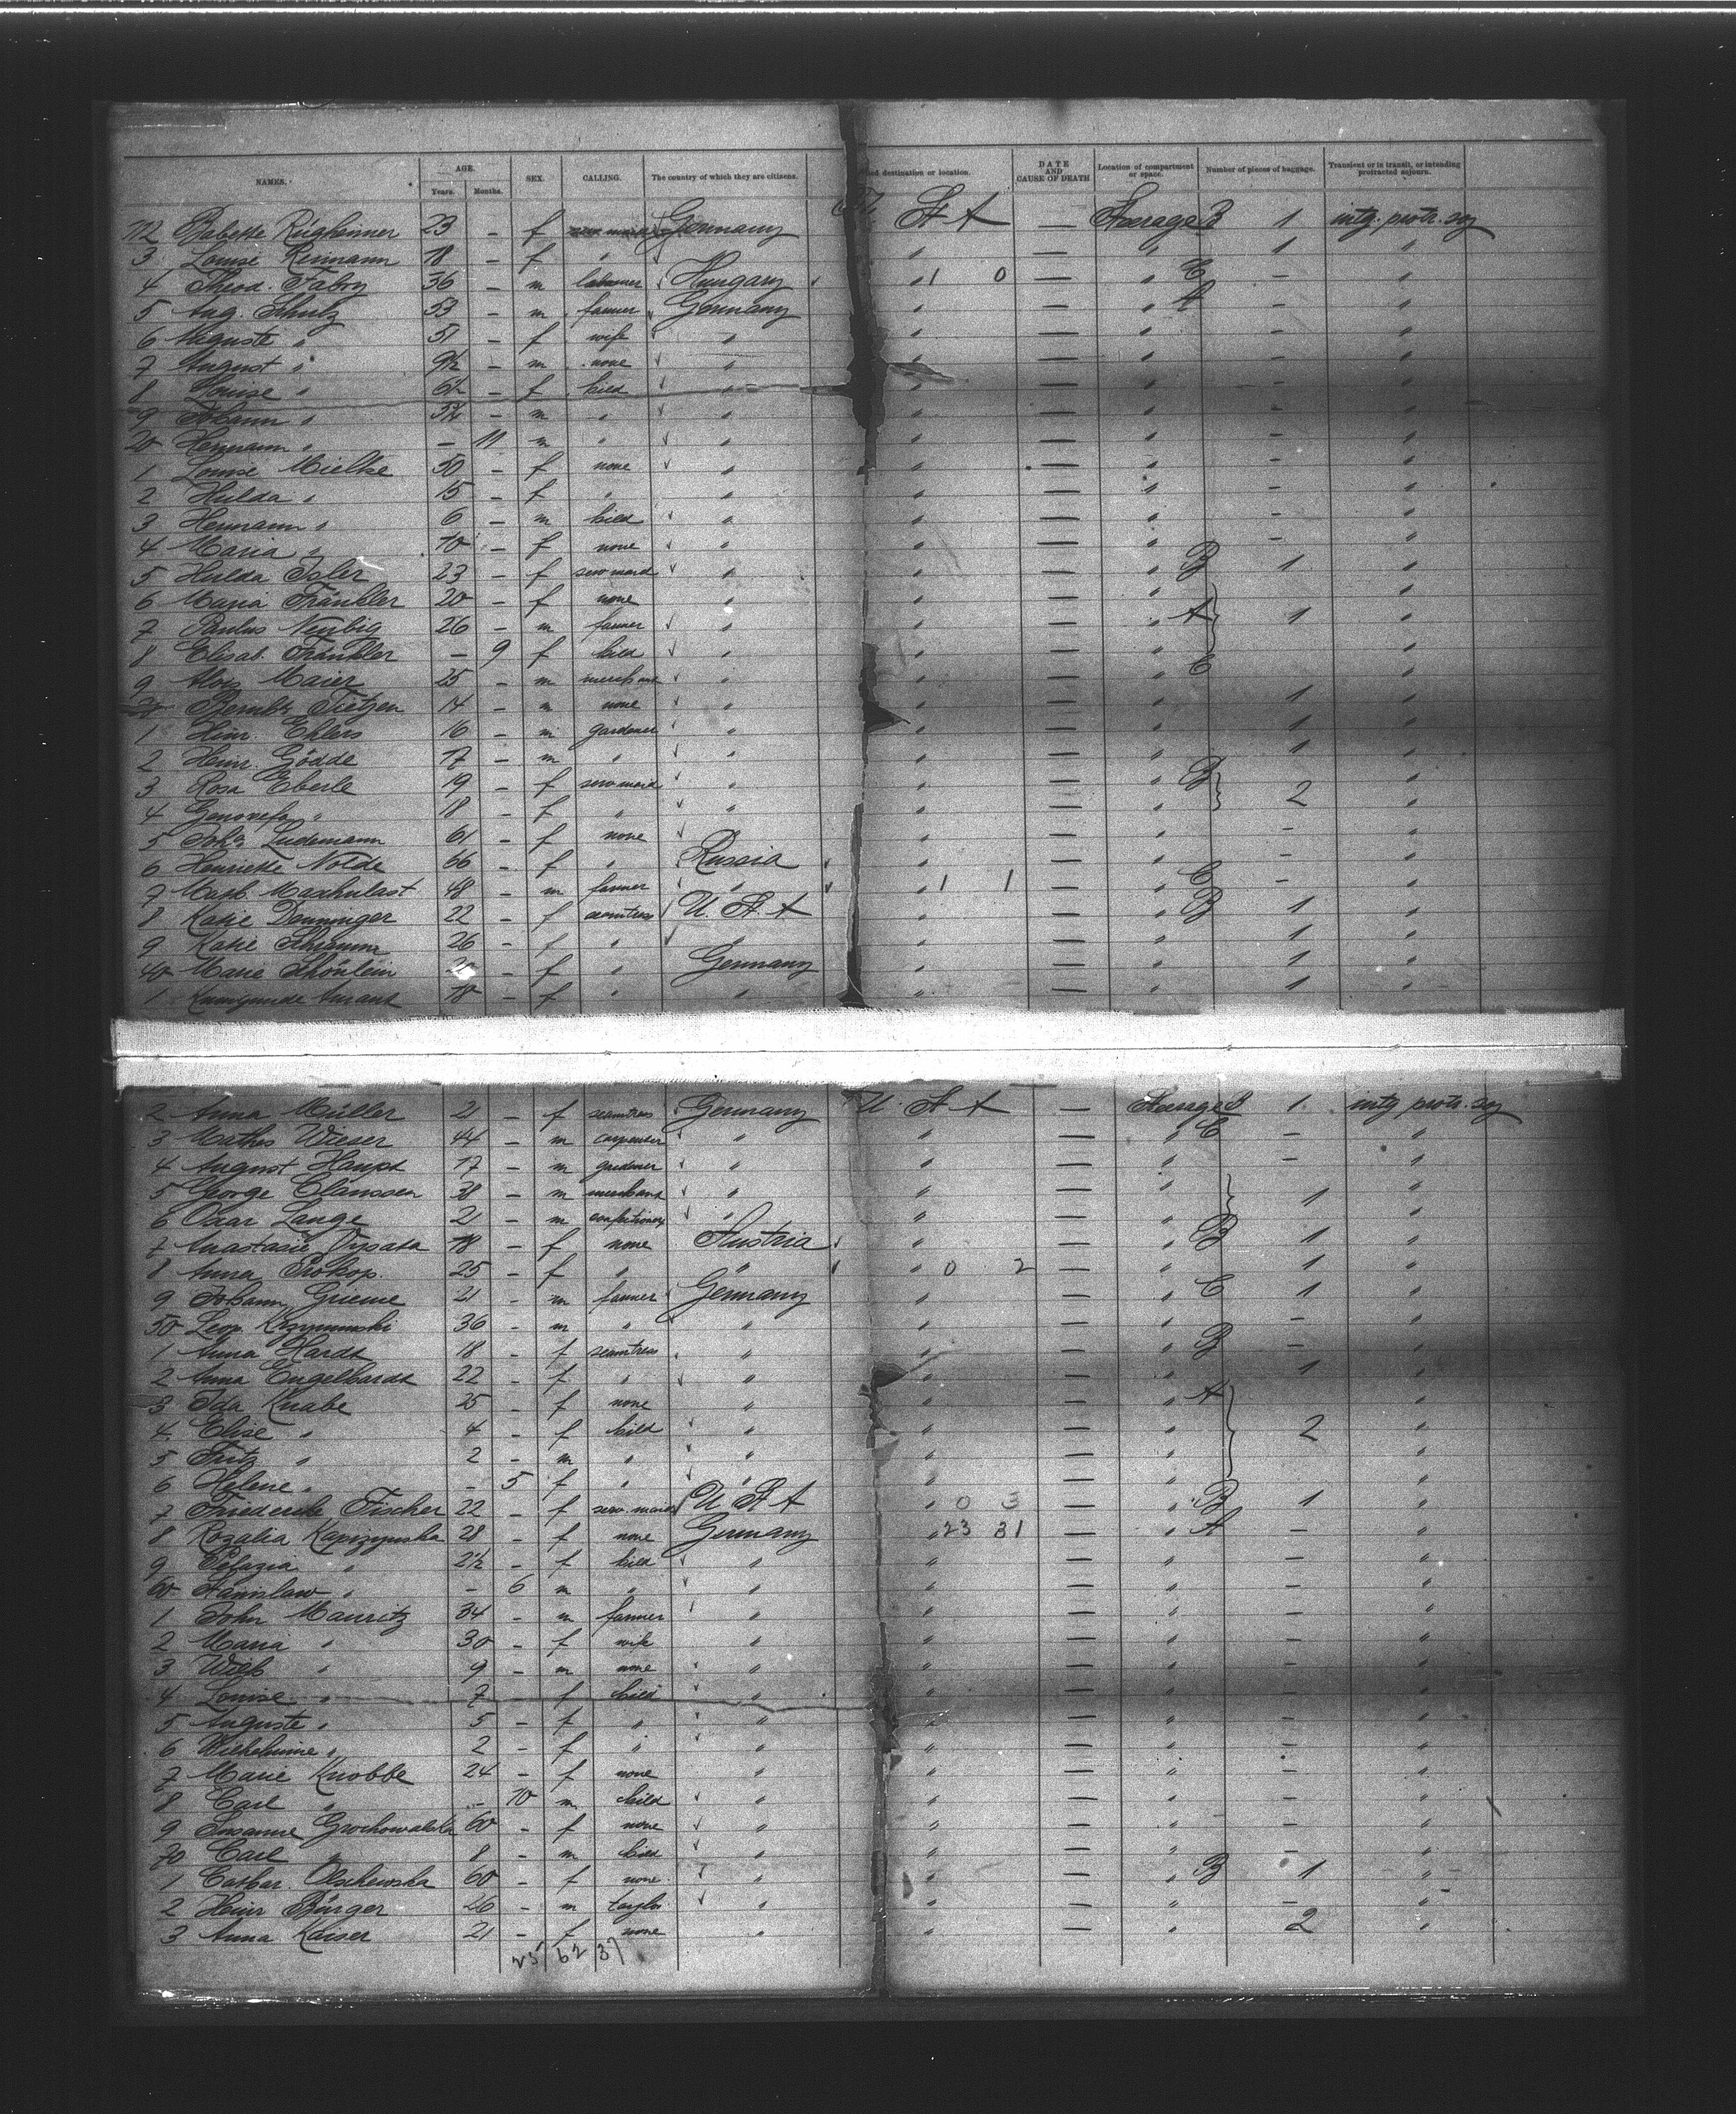 NAMES. AGE. Years. Months. SEX. CALLING. The country of which they are citizens. destination or location. DATE AND CAUSE OF DEATH Location of compartment or space. Number of pieces of baggage. Transient or in transit, or intending protracted sojourn.
23 - f Germany St A — Steerage B 1 intg. protr. soj
3 Louise 18 - f " " — " 1 "
4 Theod. Fabry 36 - m labourer Hungary " 1 0 — " C - "
5 Aug. Schulz 53 - m farmer Germany " — " A - "
6 Auguste " 51 - f wife " " — " - "
7 August " 9½ - m none " " — " - "
8 Louise " 6½ - f child " " — " - "
9 Johann " 3½ - m " " " — " - "
20 Hermann " - 11 m " " " — " - "
1 Louise Mielke 50 - f none " " — " - "
2 Hulda " 15 - f " " " — " - "
3 Hermann " 6 - m child " " — " - "
4 Maria " 70 - f none " " — " - "
5 Hulda Isler 23 - f serv maid " " — " B 1 "
6 Maria Fränkler 20 - f none " " — " "
7 Paulus Neubig 26 - m farmer " " — " A 1 "
8 Elisab. Fränkler - 9 f child " " — " "
9 Alois Maier 25 - m merchant " " — " C "
30 Tietzen 14 - m none " " — " 1 "
1 Heinr. Ehlers 16 - m gardener " " — " 1 "
2 Heinr. Gödde 17 - m " " " — " 1 "
3 Rosa Eberle 19 - f serv maid " " — " B "
4 Genovefa " 18 - f " " " — " 2 "
5 Joha Ludemann 61 - f none " — " - "
6 Henriette Nolde 66 - f " Russia " — " - "
7 48 - m farmer " " 1 1 — " C - "
8 Katie Denninger 22 - f seamtress U. St. A " — " B 1 "
9 Katie Schramm 26 - f " " " — " 1 "
40 Marie Schönlein - f " Germany " — " 1 "
1 Kunigunde 18 - f " " " — " 1 "
2 Anna Müller 21 - f seamtress Germany U. St A — Steerage B 1 intg protr. soj
3 Mathis Wieser 44 - m carpenter " " — " C - "
4 August Haupt 17 - m gardener " " — " - "
5 George Claussen 38 - m merchant " " — " 1 "
6 Oscar Lange 21 - m confectioner " " — " "
7 Anastasie 18 - f none Austria " — " B 1 "
8 Anna Prokop. 25 - f " " " 0 2 — " 1 "
9 Johann Grieme 21 - m farmer Germany " — " C 1 "
50 Leop. 36 - m " " " — " - "
1 Anna Hardt 18 - f seamtress " " — " B - "
2 Anna Engelhardt 22 - f " " " — " 1 "
3 Ida Knabe 25 - f none " " — " A "
4 Elise " 4 - f child " " — " 2 "
5 Fritz " 2 - m " " " — " "
6 Helene " - 5 f " " " — " "
7 Friederike Fischer 22 - f serv. maid U St A " 0 3 — " B 1 "
8 Rozalia 28 - f none Germany " 23 31 — " A - "
9 Pelagia " 2½ - f child " " — " - "
60 Stanislaw " - 6 m " " " — " - "
1 John Mauritz 34 - m farmer " " — " - "
2 Maria " 30 - f wife " " — " - "
3 Wilh " 9 - m none " " — " - "
4 Louise " 7 - f child " " — " - "
5 Auguste " 5 - f " " " — " - "
6 Wilhelmine " 2 - f " " " — " - "
7 Marie Knobbe 24 - f none " " — " - "
8 Carl " - 10 m child " " — " - "
9 Susanne Grochowalska 60 - f none " " — " - "
70 Carl " 8 - m child " " — " - "
1 Cathar. Olschewska 60 - f none " " — " B 1 "
2 Heinr Bürger 26 - m taylor " " — " - "
3 Anna Kaiser 21 - f none " " — " 2 "